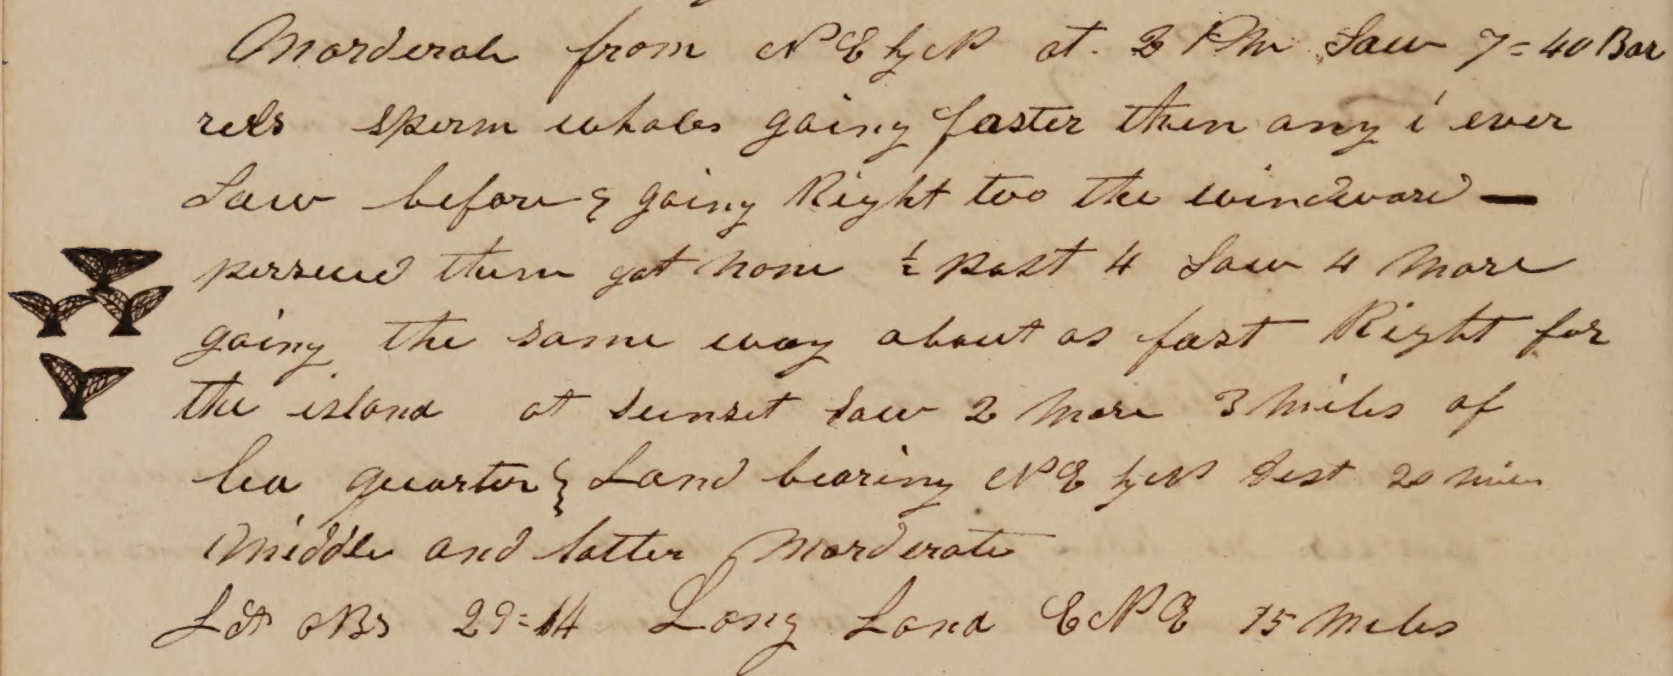 Morderate from NE by N at 2 PM Saw 7=40 Bar
rels sperm whales going faster then any i ever
Saw before & going Right too the windward —
persued them got home ½ past 4 Saw 4 more
going the same way about as fast Right for
the island at sunset saw 2 more 3 miles of
lea quarter & Land bearing NE by N dest 20 miles
Middle and latter Morderate
Lat OBs 29=14 Long Land ENE 15 Miles